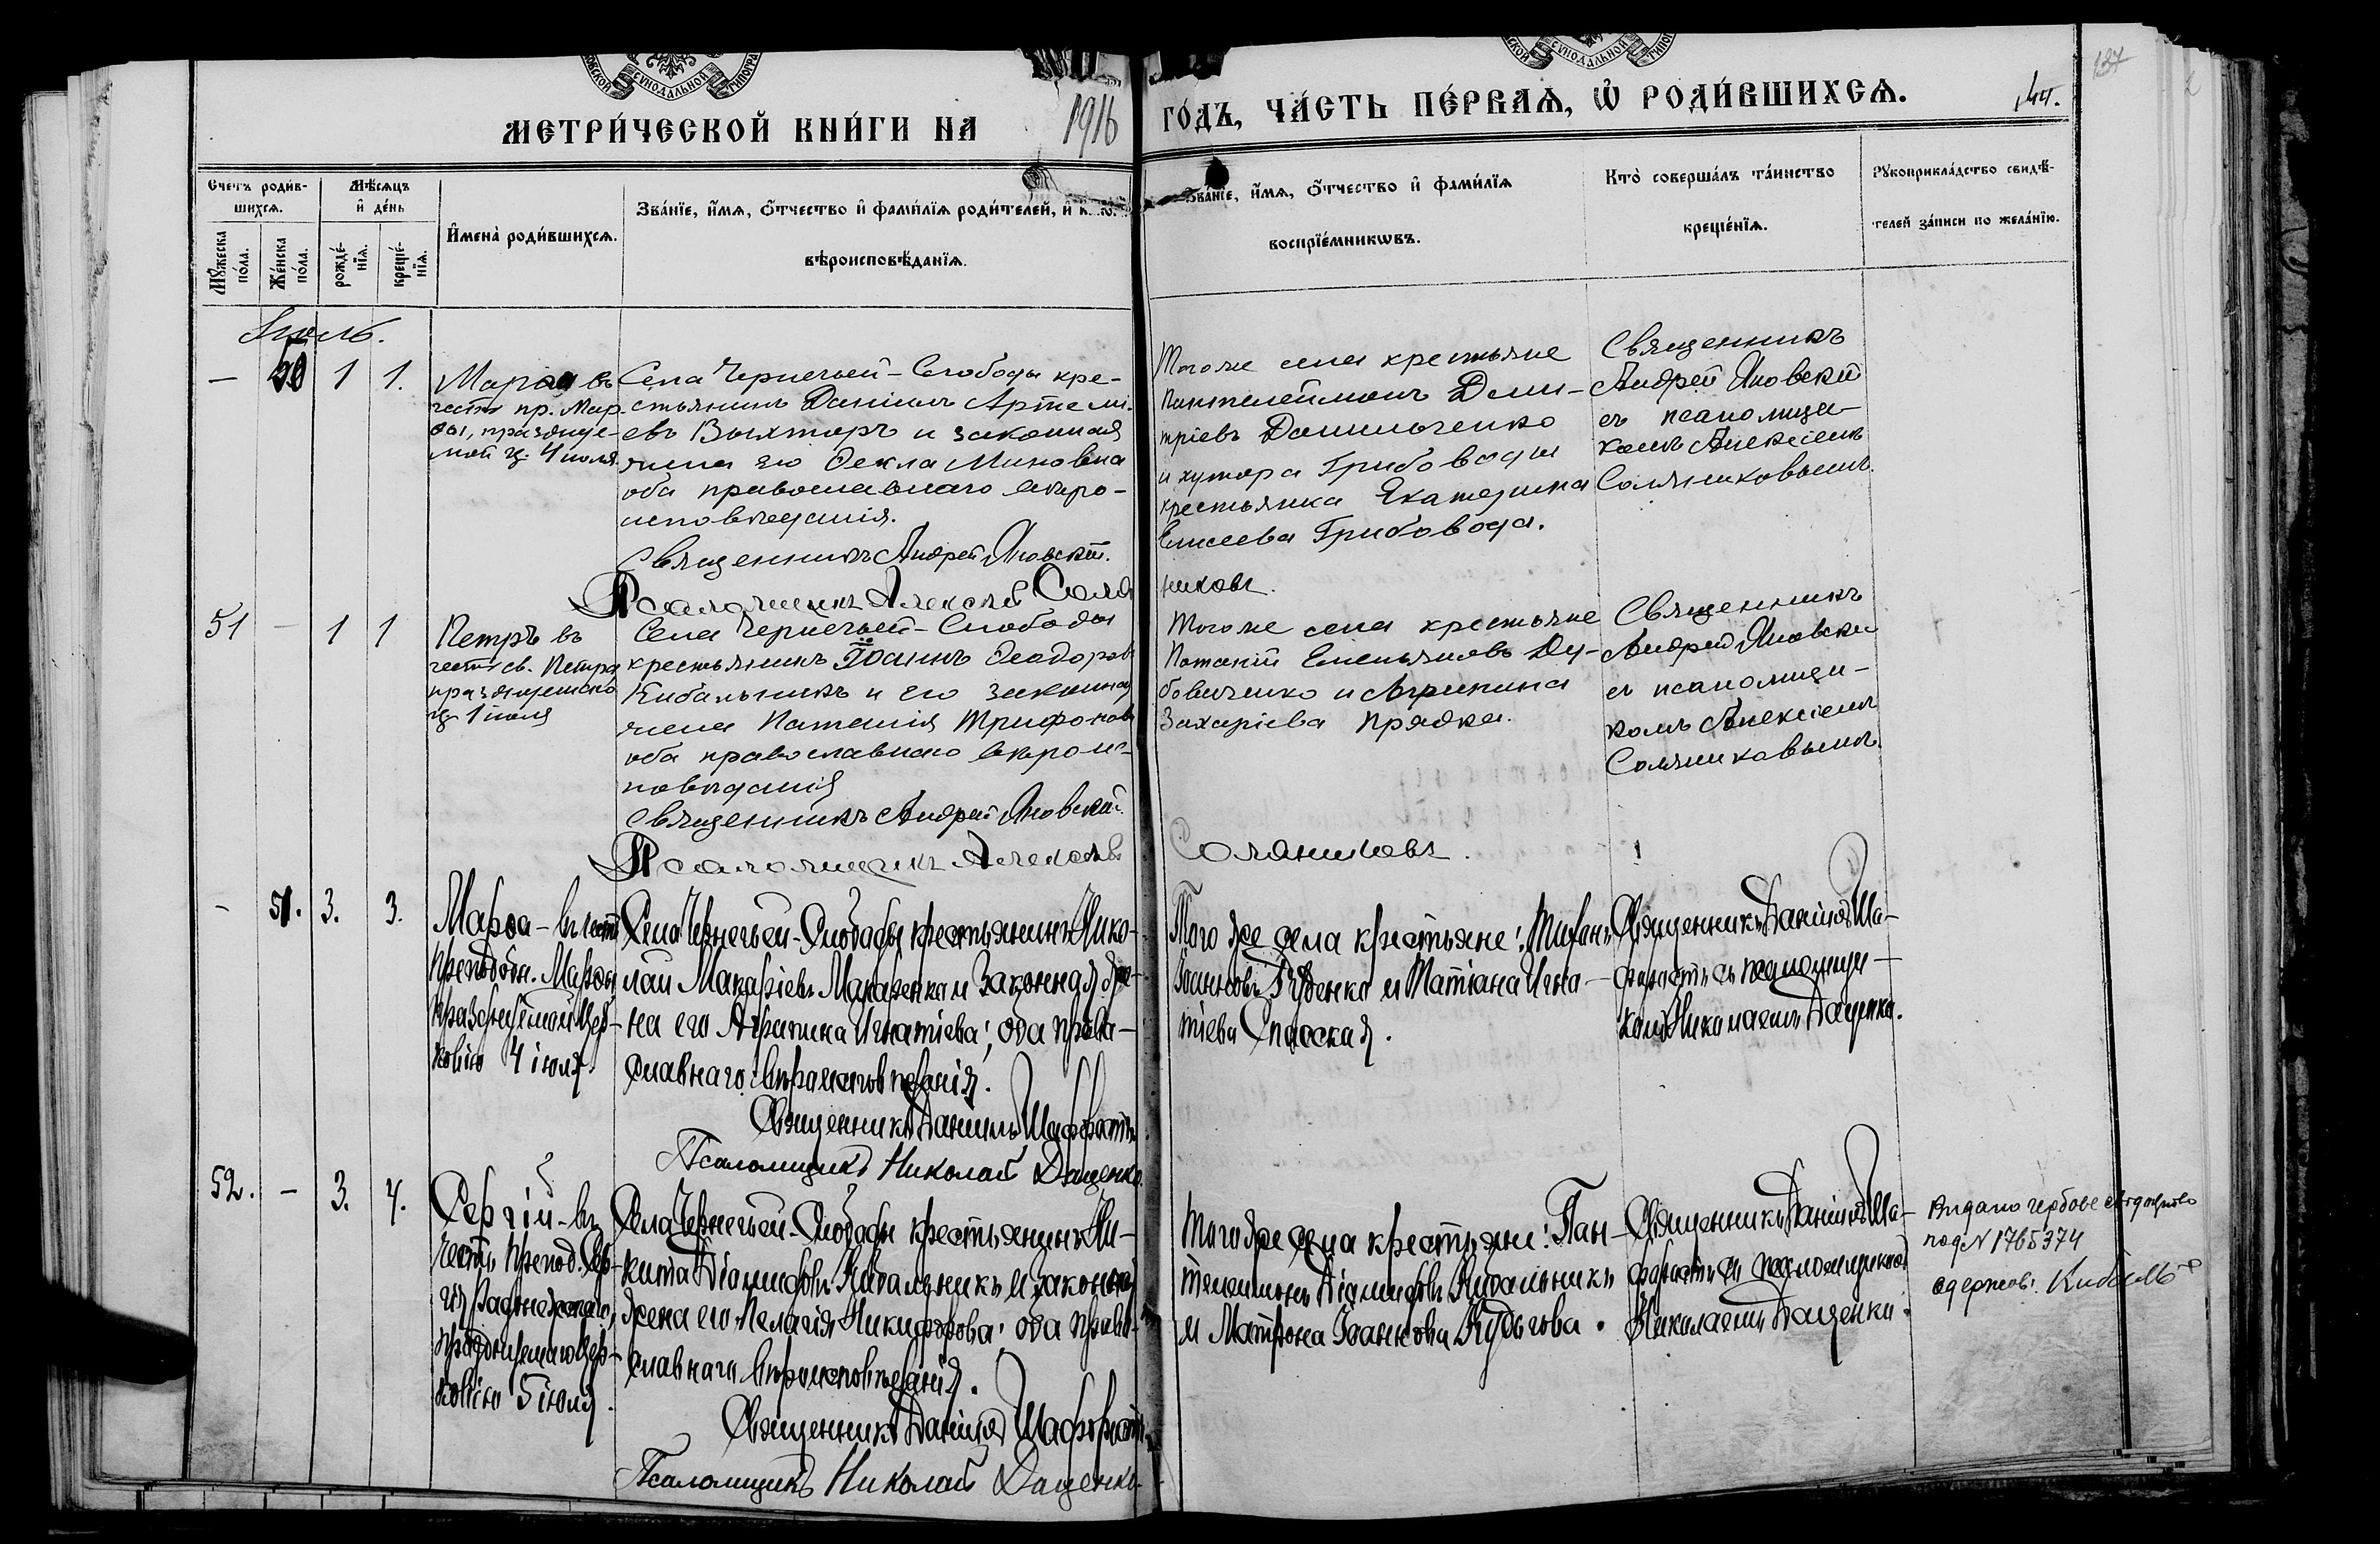 МЕТРИ́ЧЕСКОЙ КНИ́ГИ НА 1916 ГО́ДЪ, ЧА́СТЬ ПЕ́РВАѦ, Ѡ҆ РОДИ́ВШИХСѦ.
144.
137
Счетъ роди́в-
шихсѧ.
Мѣ́сѧцъ
и҆ де́нь
Мꙋ́жеска
по́ла.
Же́нска
по́ла.
рожде́-
нїѧ.
креще́-
нїѧ.
И҆мена̀ роди́вшихсѧ.
Зва́нїе, и҆́мѧ, ѻ҆́тчество и҆ фами́лїѧ роди́телей, и҆
вѣроисповѣ́данїѧ.
Зва́нїе, и҆́мѧ, ѻ҆́тчество и҆ фами́лїѧ
воспрїе́мникѡвъ.
Кто̀ соверша́лъ та́инство
креще́нїѧ.
Рꙋкоприкла́дство свидѣ́-
телей за́писи по жела́нїю.
Іюль.
— 50 1 1.
Марѳа въ
честь пр. Мар-
ѳы, празднуе-
мой ц. 4 іюля
Села Чернечьей-Слободы кре-
стьянинъ Даніилъ Артеми-
евъ Выхторъ и законная
жена его Ѳекла Миновна
оба православнаго вѣро-
исповѣданія.
Священникъ Андрей Яновскій.
Псаломщикъ Алексѣй Соля
никовъ.
Того же села крестьяне
Пантелеймонъ Дими-
тріевъ Данильченко
и хутора Грибоводы
крестьянка Екатерина
Елисеева Грибовода.
Священникъ
Андрей Яновскій
съ псаломщи-
комъ Алексіемъ
Соляниковымъ.
51 — 1 1
Петръ въ
честь св. Петра
празднуемаго
ц. 1 іюля
Села Чернечьей-Слободы
крестьянинъ Іоаннъ Ѳеодоровъ
Кибальникъ и его законная
жена Наталія Трифонова
оба православнаго вѣроис-
повѣданія
Священникъ Андрей Яновскій.
Псаломщикъ Алексѣй
Соляниковъ.
Того же села крестьяне
Потапій Емельяновъ Ду-
бовиченко и Агрипина
Захаріева Прядка.
Священникъ
Андрей Яновскій
съ псаломщи-
комъ Алексіемъ
Соляниковымъ.
- 51. 3. 3.
Марѳа - въ честь
преподобн. Марѳы,
празднуемой Цер-
ковію 4 іюля.
Села Чернечьей-Слободы крестьянинъ Нико-
лай Макаріевъ Макаренко и законная же-
на его Агрипина Игнатіева; оба право-
славнаго вѣроисповѣданія.
Священникъ Даніилъ Шафрастъ
Псаломщикъ Николай Даценко.
Того же села крестьяне:
Іоанновъ Руденко и Татіана Игна-
тіева Спасская.
Священникъ Даніилъ Ша-
фрастъ съ псаломщи-
комъ Николаемъ Даценко.
52. - 3. 4.
Сергій - въ
честь препод. Сер-
гія Радонежскаго,
празднуемаго Цер-
ковію 5 іюля.
Села Чернечьей-Слободы крестьянинъ Ни-
кита Діамидовъ Кибальникъ и законная
жена его Пелагія Никифорова; оба право-
славнаго вѣроисповѣданія.
Священникъ Даніилъ Шафрастъ
Псаломщикъ Николай Даценко
Того же села крестьяне: Пан-
телеимонъ Діамидовъ Кибальникъ
и Матрона Іоаннова
Священникъ Даніилъ Ша-
фрастъ съ псаломщикомъ
Николаемъ Даценко.
Видано гербове свидоцтво
под N 1765374
одержав: